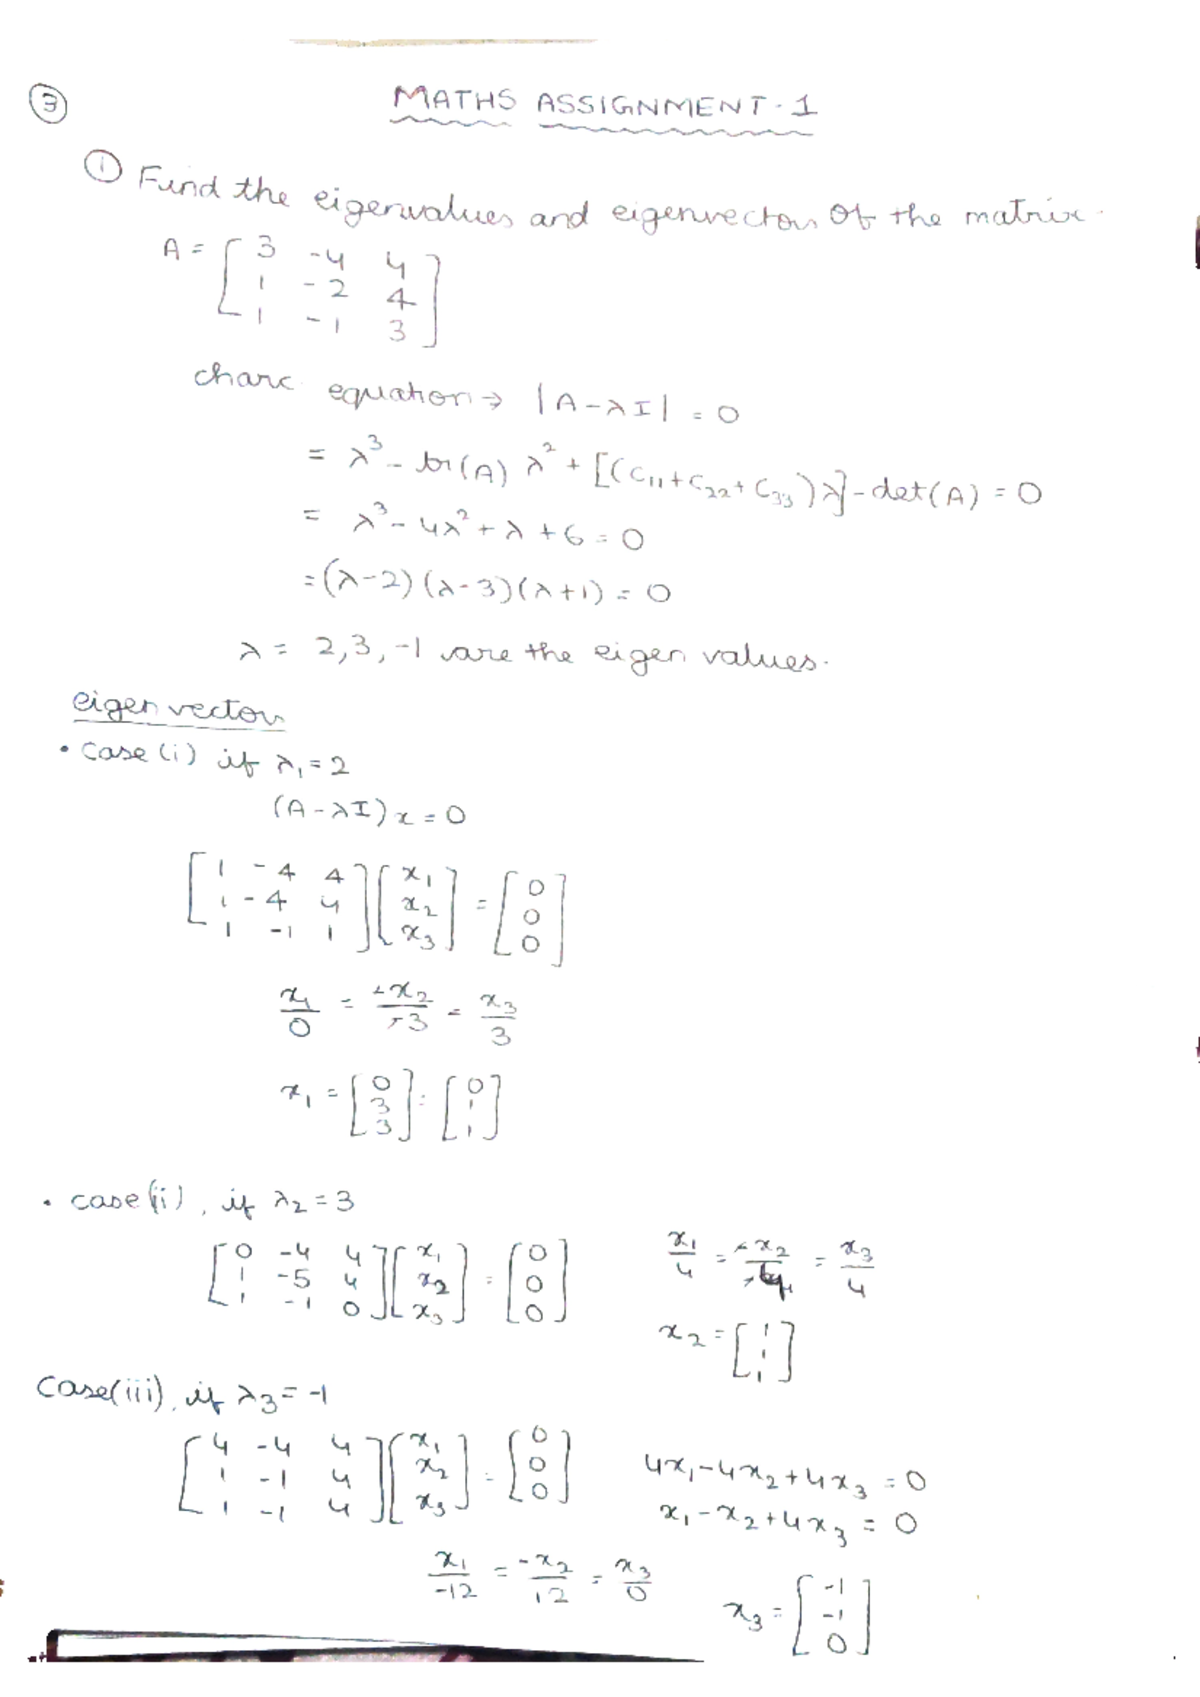 ③
MATHS ASSIGNMENT-1
① Find the eigenvalues and eigenvectors of the matrix.
A = [ 3 -4 4
1 -2 4
1 -1 3 ]
charc. equation → |A-λI| = 0
= λ³ - tr(A) λ² + [(C₁₁+C₂₂+C₃₃)λ] - det(A) = 0
= λ³ - 4λ² + λ + 6 = 0
= (λ-2)(λ-3)(λ+1) = 0
λ = 2, 3, -1 are the eigen values.
eigen vectors
• case (i) if λ₁ = 2
(A-λI)x = 0
[ 1 -4 4 ] [ x₁ ] = [ 0 ]
[ 1 -4 4 ] [ x₂ ] [ 0 ]
[ 1 -1 1 ] [ x₃ ] [ 0 ]
x₁/0 = -x₂/-3 = x₃/3
x₁ = [ 0 3 3 ] = [ 0 1 1 ]
• case (ii), if λ₂ = 3
[ 0 -4 4 ] [ x₁ ] = [ 0 ]
[ 1 -5 4 ] [ x₂ ] [ 0 ]
[ 1 -1 0 ] [ x₃ ] [ 0 ]
x₁/4 = -x₂/-4 = x₃/4
x₂ = [ 1 1 1 ]
case (iii), if λ₃ = -1
[ 4 -4 4 ] [ x₁ ] = [ 0 ]
[ 1 -1 4 ] [ x₂ ] [ 0 ]
[ 1 -1 4 ] [ x₃ ] [ 0 ]
4x₁ - 4x₂ + 4x₃ = 0
x₁ - x₂ + 4x₃ = 0
x₁/-12 = -x₂/12 = x₃/0
x₃ = [ -1 -1 0 ]